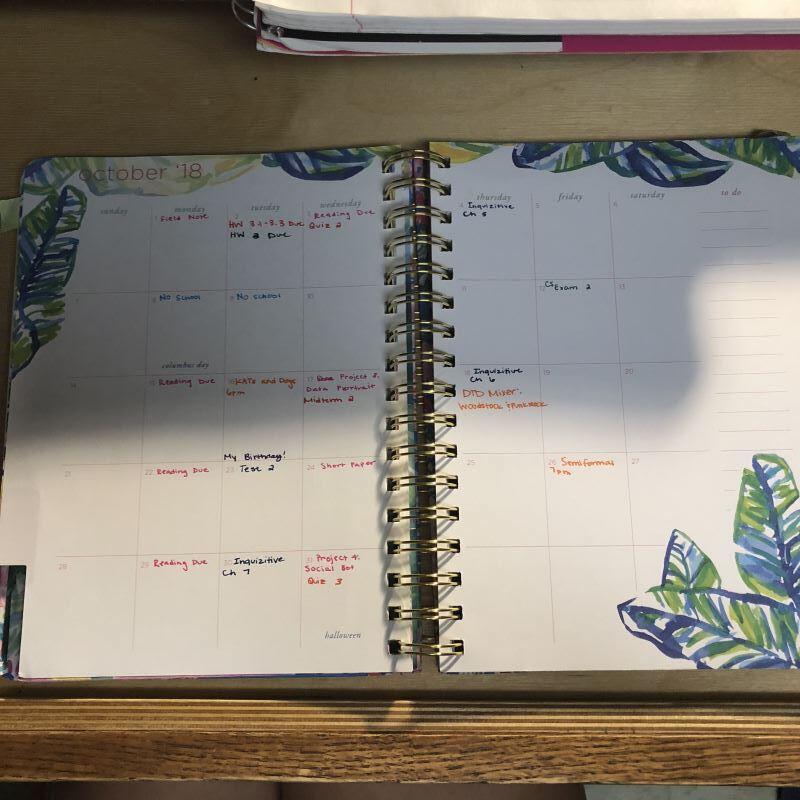 october '18
sunday
monday
tuesday
wednesday
thursday
friday
saturday
to do
1 Field Note
2
HW 3.1-3.3 Due
HW 2 Due
3 Reading Due
Quiz 2
4 Inquizitive
Ch 5
5
6
7
8 No school
columbus day
9 No school
10
11
12 CS Exam 2
13
14
15 Reading Due
16 KATs and Dogs
6pm
My Birthday!
17 Project 3:
Data Portrait
Midterm 2
18 Inquizitive
Ch 6
DTD Mixer:
Woodstock
19
20
21
22 Reading Due
23 Test 2
24 Short Paper
25
26 Semiformal
7pm
27
28
29 Reading Due
30 Inquizitive
Ch 7
31 Project 4:
Social Bot
Quiz 3
halloween